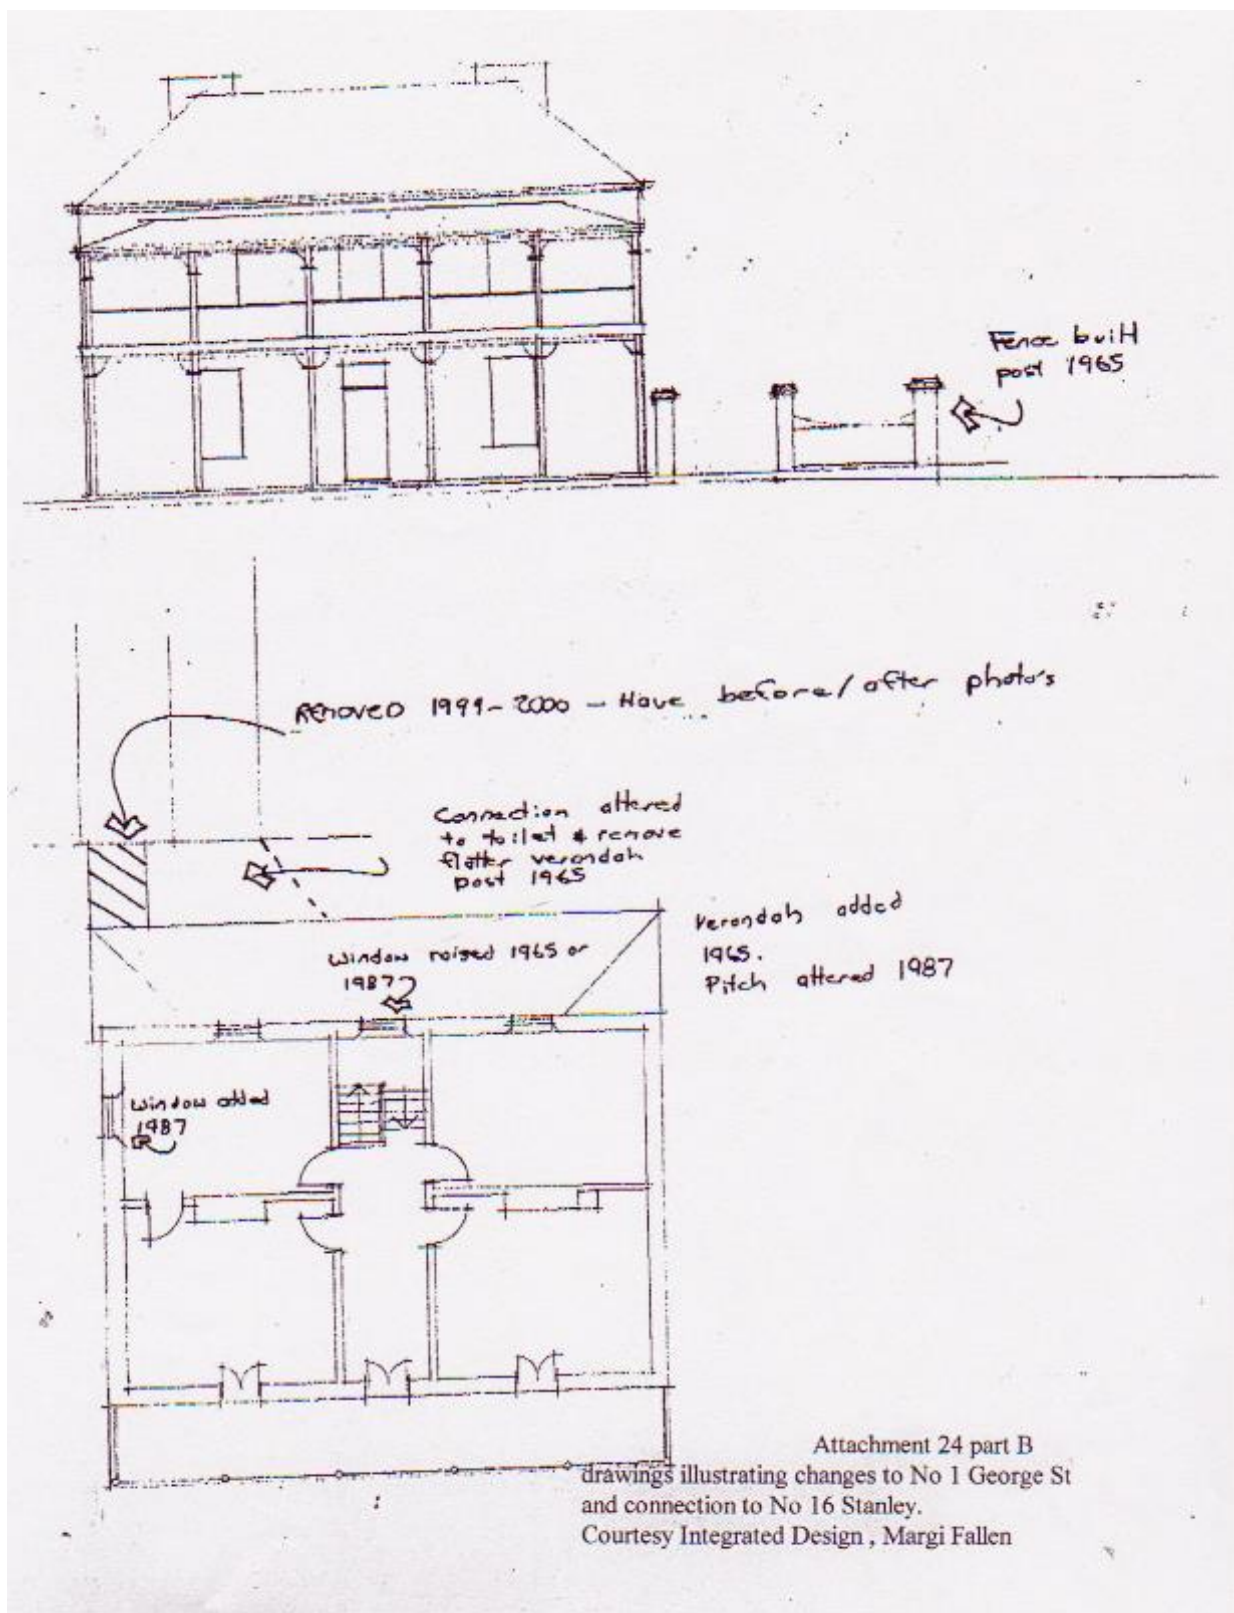 Fence built
post 1965
Removed 1999-2000 - Have before/after photo's
Connection altered
to toilet & remove
flatter verandah
post 1965
Verandah added
1965.
Pitch altered 1987
Window raised 1965 or
1987?
Window added
1987
Attachment 24 part B
drawings illustrating changes to No 1 George St
and connection to No 16 Stanley.
Courtesy Integrated Design , Margi Fallen